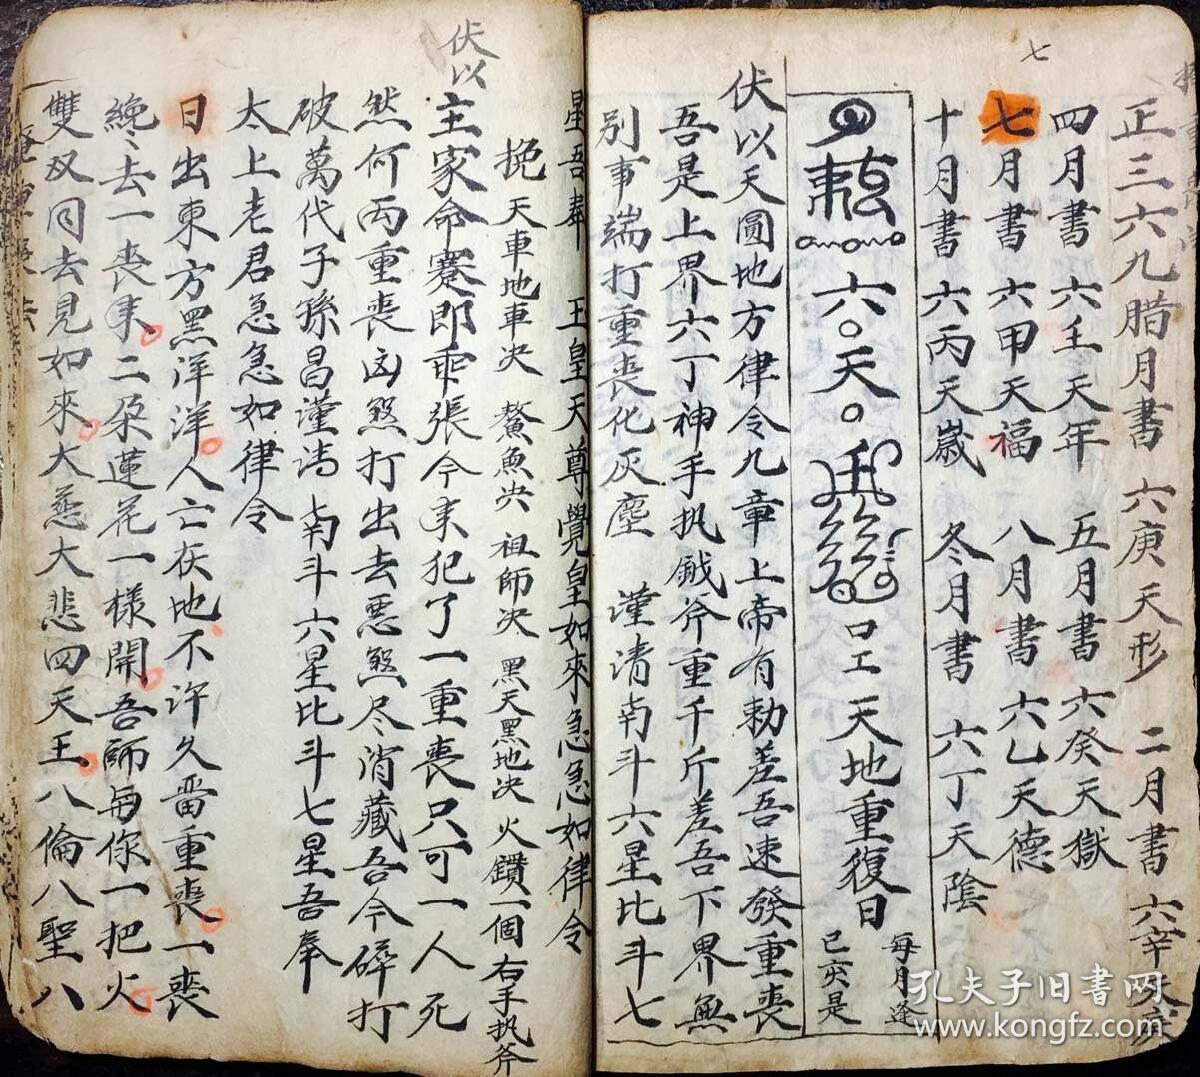 七
正三六九腊月書 六庚天形 二月書 六辛天庭
四月書 六壬天年 五月書 六癸天獄
七月書 六甲天福 八月書 六乙天德
十月書 六丙天歲 冬月書 六丁天陰
六天 天地重復日
每月逢
已亥是
伏以天圓地方律令九章上帝有勅差吾速發重喪
吾是上界六丁神手执鉞斧重千斤差吾下界無
别事端打重喪化灰塵 謹请南斗六星比斗七
星吾奉 玉皇天尊覺皇如來急急如律令
挽 天車地車决 鰲魚决 祖師决 黑天黑地决 火鑽一個右手执斧
伏以
主家命蹇郎乖張今来犯了一重喪只可一人死
然何両重喪凶煞打出去惡煞尽消藏吾今碎打
破萬代子孫昌謹请南斗六星比斗七星吾奉
太上老君急急如律令
日出東方黑洋洋人亡在地不许久畄重喪一喪
纔去一喪来二朵蓮花一樣開吾師每你一把火
雙双同去見如來大慈大悲四天王八倫八聖八
孔夫子旧书网
www.kongfz.com